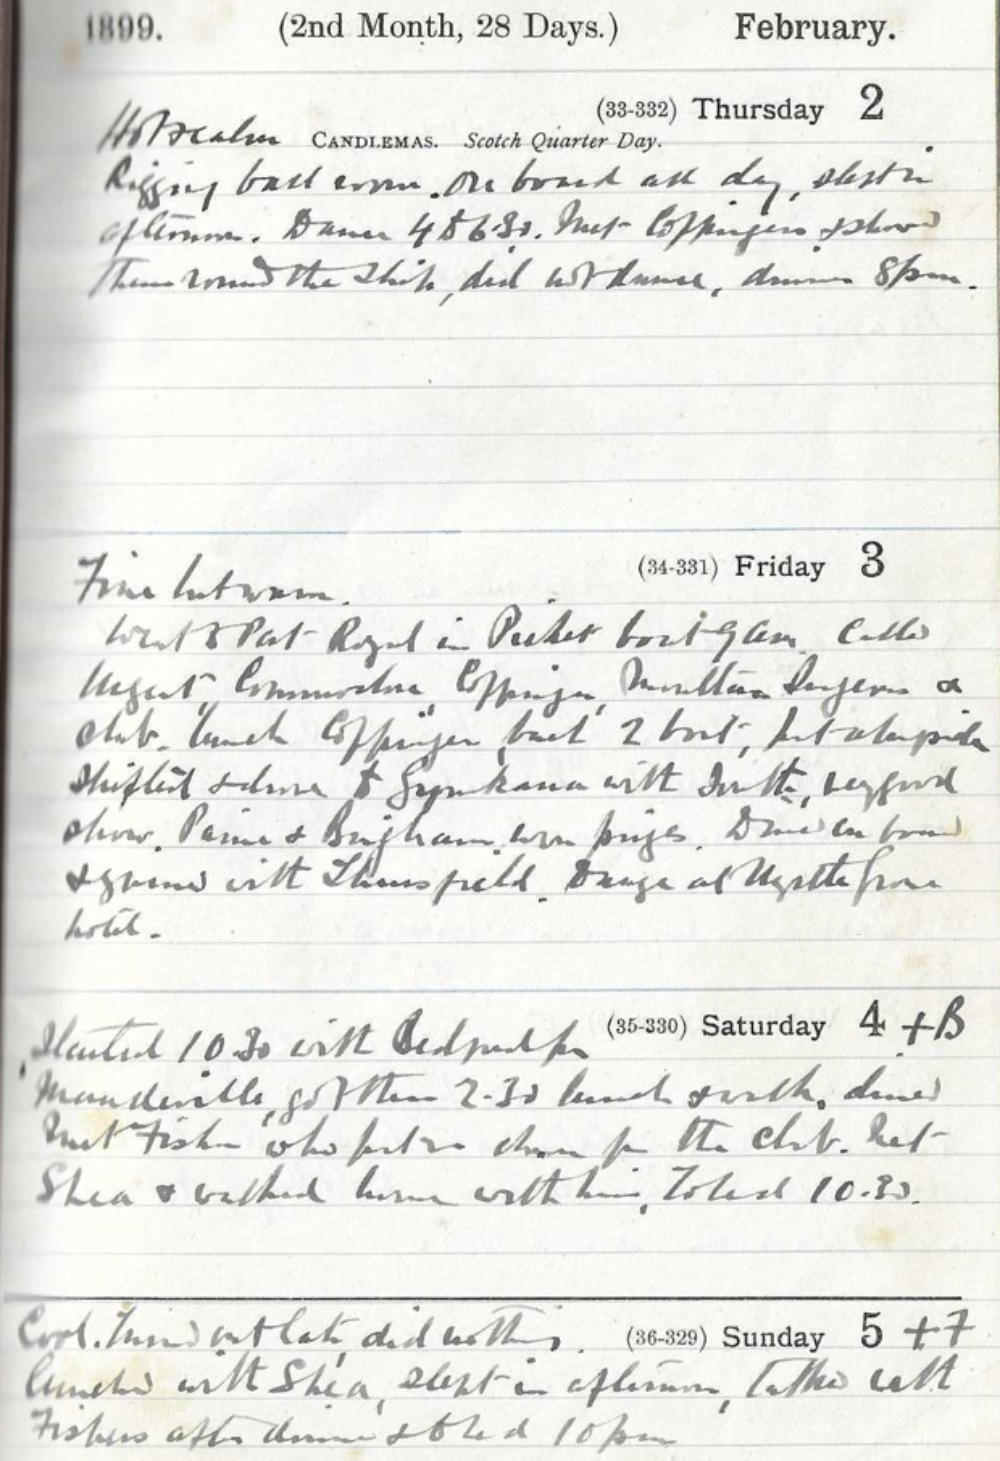 1899. (2nd Month, 28 Days.) February.
(33-332) Thursday 2
Hot & calm CANDLEMAS. Scotch Quarter Day.
Rigging ball room. On board all day, slept in
afternoon. Dance 4 to 6.30. Met Coppingers & showed
them round the ship, did not dance, dinner 8pm.
(34-331) Friday 3
Fine but warm.
Went to Port Royal in Picket boat 9am. Called
Urgent, Commodore, Coppinger, Moulton Surgeons &
club. lunch Coppinger, back 2 boat, put alongside
shifted & drove to Gymkana with, very good
show. Paine & Brigham won prizes. Dined on board
& with Thursfield. Dance at Myrtle grove
hotel.
(35-330) Saturday 4 + B
Started 10.30 with Bedford for
Mandeville, got there 2-30 lunch & walk, dined
Met Fisher who put me down for the club. Met
Shea & walked home with him, To bed 10.30.
Cool. Turned out late, did nothing. (36-329) Sunday 5 + 7
lunched with Shea, slept in afternoon, talked with
Fishers after dinner & to bed 10pm